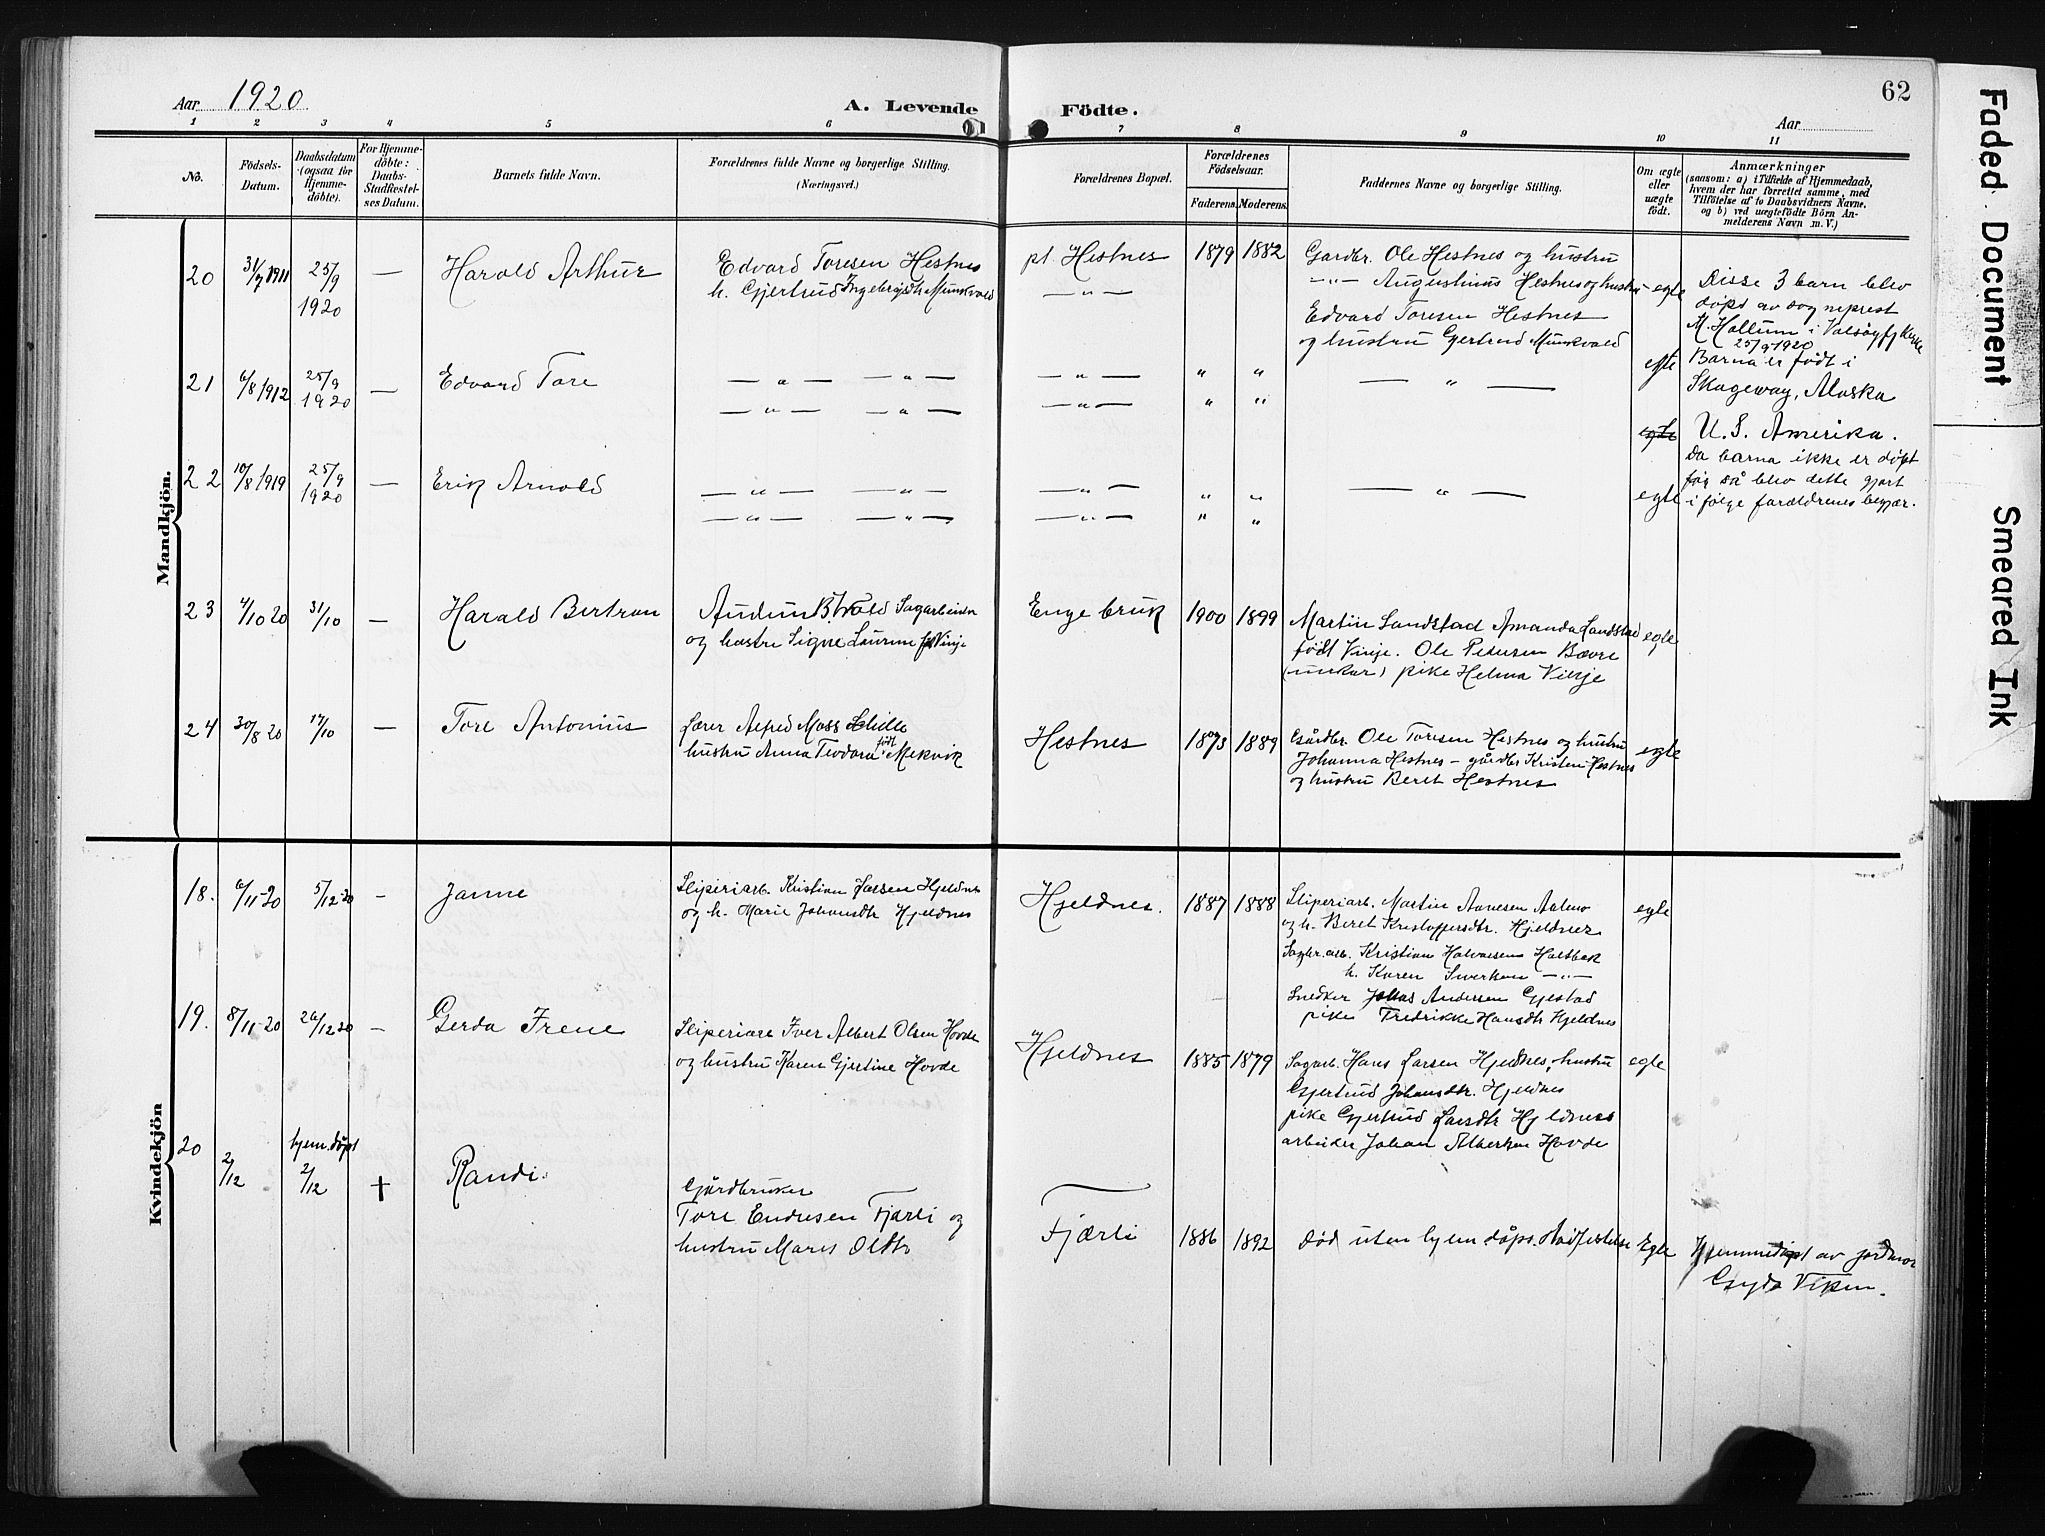 Aar 1920
A. Levende Födte.
62
Aar
1 2 3 4 5 6 7 8 9 10 11
No.
Födsels-
Datum.
Daabsdatum
(ogsaa for
Hjemme-
döbte).
For Hjemme-
döbte:
Daabs-
Stadfæstel-
ses Datum.
Barnets fulde Navn.
Forældrenes fulde Navne og borgerlige Stilling.
(Næringsvei.)
Forældrenes Bopæl.
Forældrenes
Födselsaar.
Faderens. Moderens.
Faddernes Navne og borgerlige Stilling.
Om ægte
eller
uægte
födt.
Anmærkninger
(saasom: a) i Tilfælde af Hjemmedaab,
hvem der har forrettet samme, med
Tilföielse af to Daabsvidners Navne,
og b) ved uægtefödte Börn An-
melderens Navn m. V.)
Mandkjön.
20 31/7 1911 25/9 1920 — Harald Arthur
Edvard Toresen Hestnes
h. Gjertrud Ingebrigsdtr Munkvold
pt. Hestnes
— " —
1879 1882
Gardbr. Ole Hestnes og hustru
— " — Augustinus Hestnes og hustru
Edvard Toresen Hestnes
og hustru Gjertrud Munkvold
egte
Disse 3 barn blev
døpt av sogneprest
M. Hollum i Valsøyfj kirke
25/9 1920
Barna er født i
Skageway, Alaska
U. S. Amerika.
Da barna ikke er døpt
før så blev dette gjort
i følge forældrenes begjær.
21 6/8 1912 25/9 1920 — Edvard Tore
— " — — " — — " — " " — " — egte
— " — — " — — " — " "
egte
22 10/8 1919 25/9 1920 — Erik Arnold
— " — — " — — " — " " — " — egte
— " — — " — — " — " "
23 4/10 20 31/10 — Harald Bertran
Audun B. Wold Sagarbeider
og hustru Signe Laurine f. Vinje
Enge bruk 1900 1899
Martin Sandstad Amanda Sandstad
født Vinje. Ole Petersen Bævre
(unekar) pike Helma Vinje
egte
24 30/8 20 17/10 — Tore Antonius
Lærer Alfred Moss Schille
hustru Anna Teodora født Mekvik
Hestnes 1873 1889
Gårdbr. Ole Toresen Hestnes og hustru
Johanna Hestnes – gårdbr Kristen Hestnes
og hustru Beret Hestnes
egte
Kvindekjön
18. 6/11-20 5/12-20 — Janne
Sliperiarb. Kristian Larsen Hjeldnes
og h. Marie Johansdtr Hjeldnes
Hjeldnes. 1887 1888
Sliperiarb. Martin Arnesen Aalmo
og h. Beret Kristoffersdtr. Hjeldnes
Sagbr.arb. Kristian Halvorsen Holtbak
h. Karen — " —
Snedker Johas Andersen Gjestad
pike Fredrikke Hansdtr Hjeldnes
egte
19. 8/11-20 26/12 20 — Gerda Irene
Sliperiarb Iver Albert Olsen Hovde
og hustru Karen Gjertine Hovde
Hjeldnes 1885 1879
Sagarb. Hans Larsen Hjeldnes, hustru
Gjertrud Johansdtr. Hjeldnes
pike Gjertrud Larsdtr Hjeldnes
arbeider Johan Albertsen Hovde
egte
20 2/12 hjem.døpt 2/12 † Randi.
Gårdbruker
Tore Endresen Fjærli og
hustru Marit Olsdtr
Fjærli 1886 1892
Død uten hjem døps. stadfestelse
Egte
Hjemmedøpt av jordmor
Gyda Viken.
Faded Document
Smeared Ink